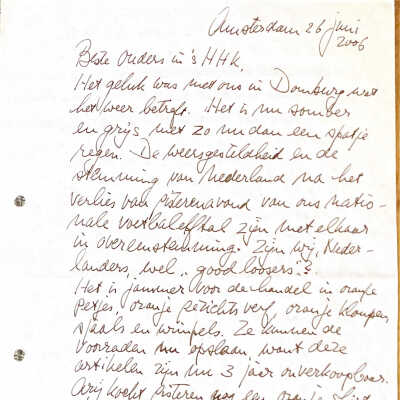 Amsterdam 26 juni
2006
Beste ouders in 's HHK,
Het geluk was met ons in Domburg wat
het weer betreft. Het is nu somber
en grijs met zo nu dan een spatje
regen. De weersgesteldheid en de
stemming van Nederland na het
verlies van gisterenavond van ons natio-
nale voetbalelftal zijn met elkaar
in overeenstemming. Zijn wij, Neder-
landers, wel "good loosers"?
Het is jammer voor de handel in oranje
petjes, oranje gezichtsverf, oranje klompen,
sjaals en wimpels. Ze kunnen de
voorraden nu opslaan, want deze
artikelen zijn nu 3 jaar onverkoopbaar.
kocht gisteren nog een oranje